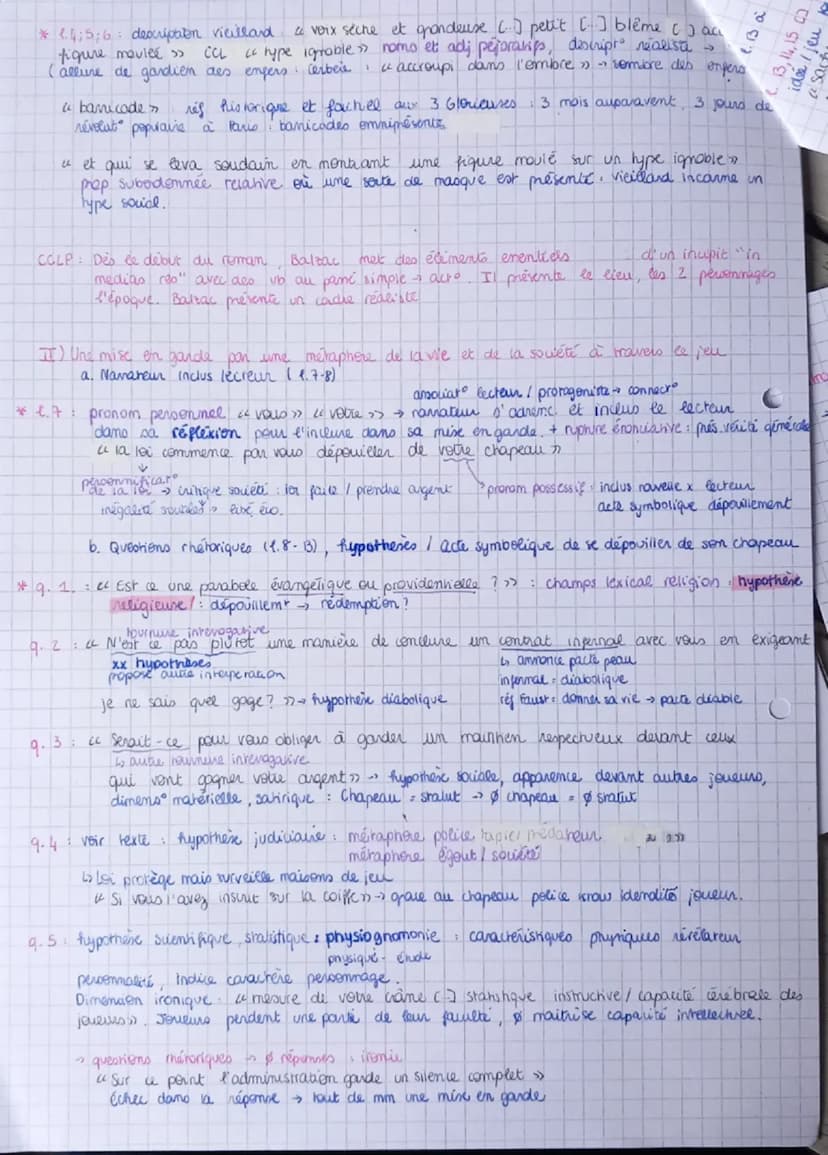 * l.4;5;6 : description vieillard « voix sèche et grondeuse (..) petit [..] blême ( ) acc
figure moulée » CCL « type ignoble » noms et adj péjoratifs, descript° réaliste →
(allure de gardien des enfers : Cerbère, « accroupi dans l'ombre » → sombre des enfers
« barricade » réf historique et factuel aux 3 Glorieuses : 3 mois auparavant, 3 jours de
révolut° populaire à Paris : barricades omniprésentes
« et qui se leva soudain en montrant une figure moulé sur un type ignoble »
prop subordonnée relative où une sorte de masque est présenté. Vieillard incarne un
type social.
CCLP : Dès le début du roman, Balzac met des éléments essentiels d'un incipit "in
medias res" avec des vb au passé simple → act°. Il présente le lieu, les 2 personnages
l'époque. Balzac présente un cadre réaliste
II) Une mise en garde par une métaphore de la vie et de la société à travers le jeu
a. Narrateur inclus lecteur (l.7-8)
associat° lecteur / protagoniste → connect°
* l.7 : pronom personnel « vous » « votre » → narrateur s'adresse et inclus le lecteur
dans sa réflexion pour l'inclure dans sa mise en garde. + rupture énonciative : prés. vérité générale
« la loi commence par vous dépouiller de votre chapeau »
personnificat°
de la loi → critique société : loi faite / prendre argent
inégalité
pronom possessif : inclus nouvelle x lecteur
acte symbolique dépouillement
b. Questions rhétoriques (l.8-13), hypothèses / acte symbolique de se dépouiller de son chapeau
* q.1. : « Est ce une parabole évangélique ou providentielle ? » : champs lexical religion : hypothèse
religieuse / : dépouillemt → rédemption ?
tournure interrogative
q.2 : « N'est ce pas plutôt une manière de conclure un contrat infernal avec vous en exigeant
xx hypothèses
propose autre interpération
↳ annonce pacte peau
infernal = diabolique
je ne sais quel gage ? » → hypothèse diabolique
réf Faust : donner sa vie → pacte diable
q.3 : « Serait-ce pour vous obliger à garder un maintien respectueux devant ceux
↳ autre tournure interrogative
qui vont gagner votre argent » → hypothèse sociale, apparence devant autres joueurs,
dimens° matérielle, satirique : Chapeau = statut → ø chapeau = ø statut
q.4 : voir texte : hypothèse judiciaire : métaphore police
métaphore égout / société
↳ loi protège mais surveille maisons de jeu
« Si vous l'avez inscrit sur la coiffe » → grace au chapeau police know identité joueur.
q.5 : hypothèse scientifique, statistique : physiognomonie : caractéristiques physiques révélateur
physique - étude
personnalité, indice caractère personnage.
Dimension ironique : « mesure de votre crâne (-) statistique instructive / capacité cérébrale des
joueurs ». Joueurs perdent une partie de leur faculté, ø maitrise capacité intellectuel.
→ questions rhétoriques → ø réponses : ironie
« Sur ce point l'administration garde un silence complet »
échec dans la réponse → tout de mm une mise en garde
l.13,14,15
idée / jeu